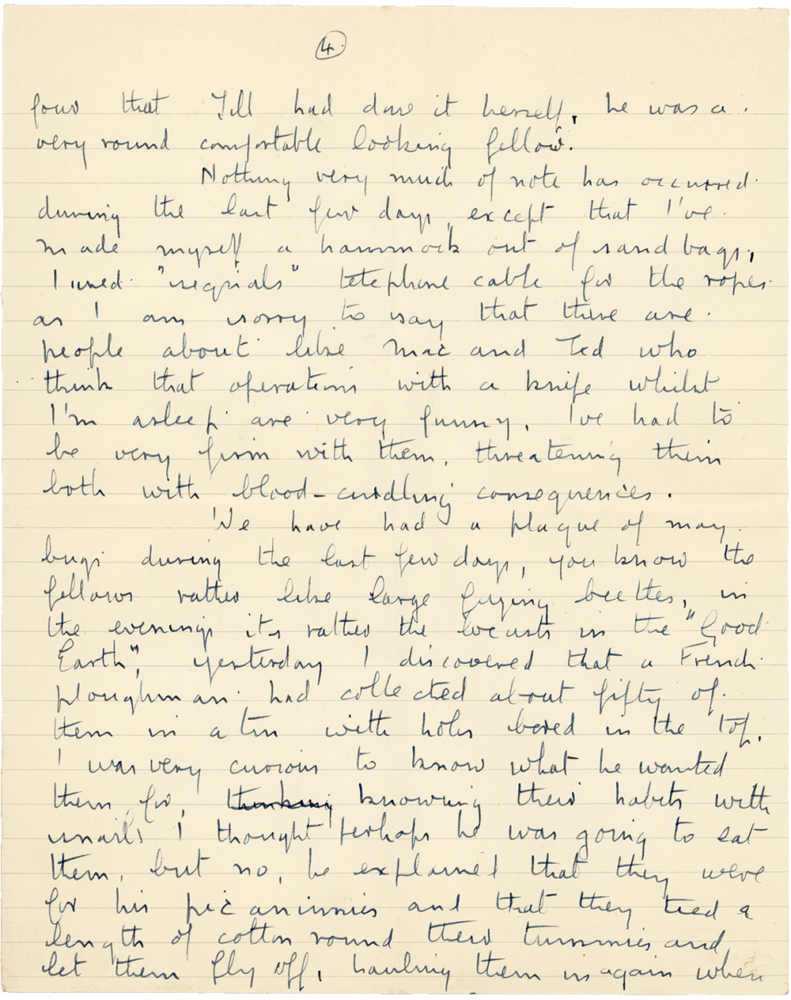 4.
four that Jill had done it herself, he was a
very round comfortable looking fellow.
Nothing very much of note has occurred
during the last few days, except that I've
made myself a hammock out of sandbags,
I used "signals" telephone cable for the ropes
as I am sorry to say that there are
people about like Mac and Ted who
think that operations with a knife whilst
I'm asleep are very funny, I've had to
be very firm with them, threatening them
both with blood-curdling consequences.
We have had a plague of may
bugs during the last few days, you know the
fellows rather like large flying beetles, in
the evenings its rather the locusts in the "Good
Earth", yesterday I discovered that a French
ploughman had collected about fifty of
them in a tin with holes bored in the top,
I was very curious to know what he wanted
them for, thinking knowing their habits with
snails I thought perhaps he was going to eat
them, but no, he explained that they were
for his picaninnies and that they tied a
length of cotton round their tummies and
let them fly off, hauling them in again when